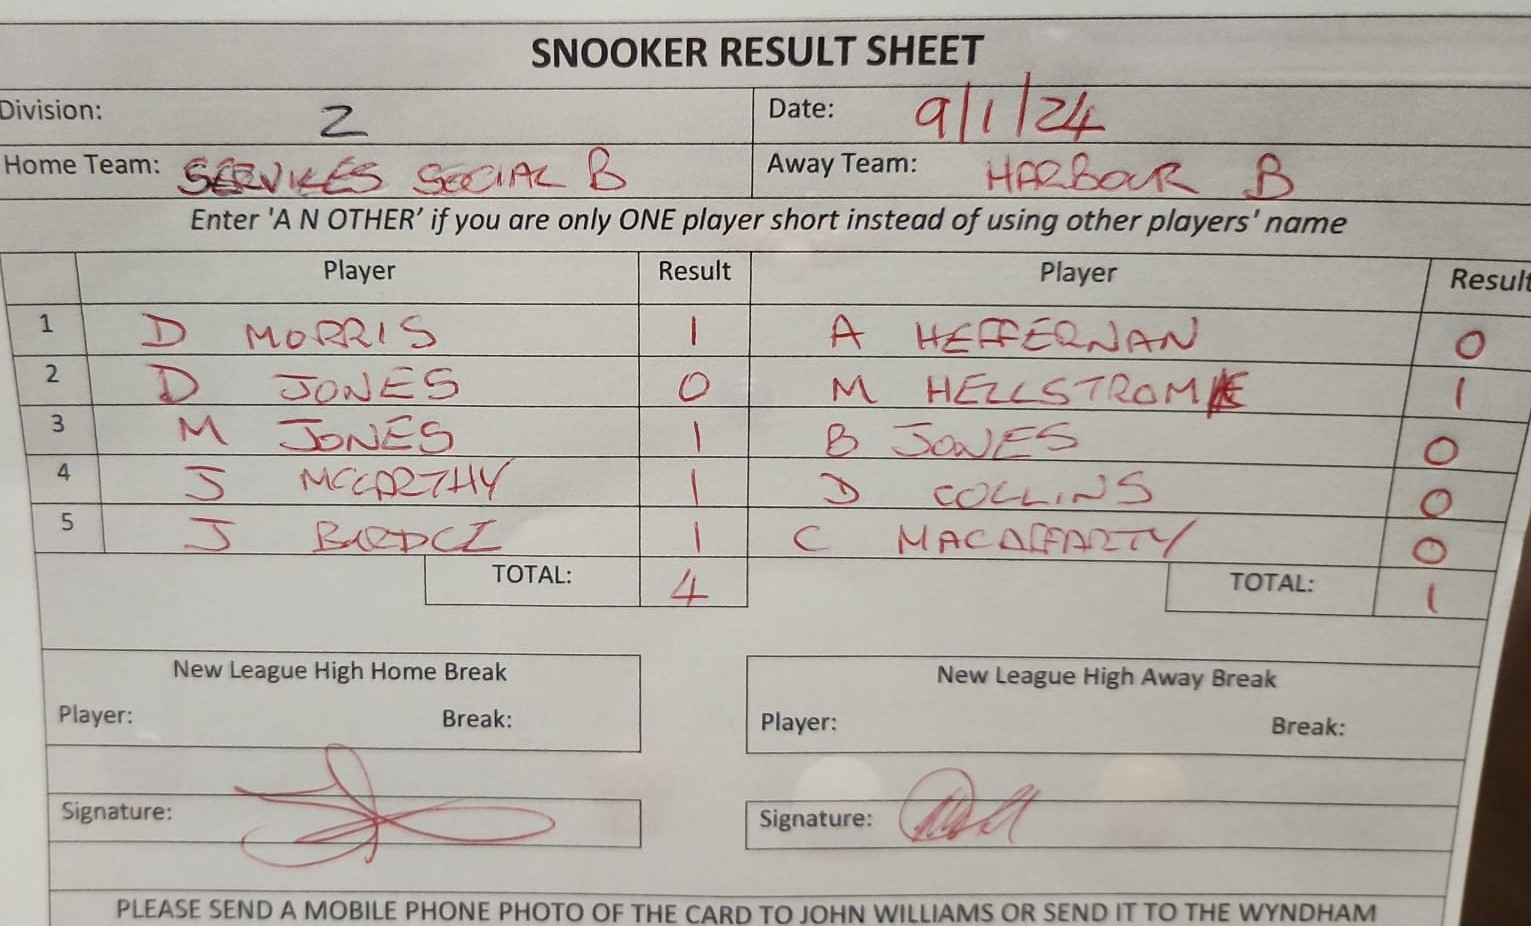 SNOOKER RESULT SHEET
Division: 2 Date: 9/1/24
Home Team: SERVICES SOCIAL B Away Team: HARBOUR B
Enter 'A N OTHER' if you are only ONE player short instead of using other players' name
Player Result Player Result
1 D MORRIS 1 A HEFFERNAN 0
2 D JONES 0 M HELLSTROM 1
3 M JONES 1 B JONES 0
4 J MCCARTHY 1 D COLLINS 0
5 J 1 C MACAFFARTY 0
TOTAL: 4 TOTAL: 1
New League High Home Break New League High Away Break
Player: Break: Player: Break:
Signature: Signature:
PLEASE SEND A MOBILE PHONE PHOTO OF THE CARD TO JOHN WILLIAMS OR SEND IT TO THE WYNDHAM